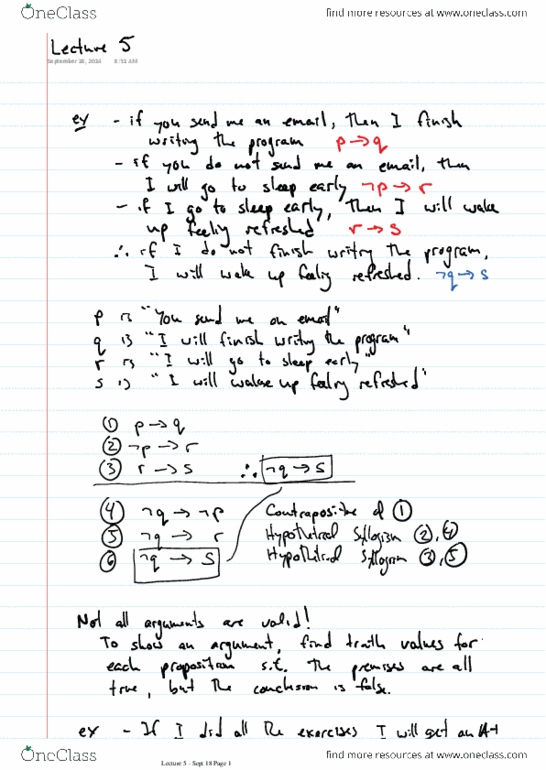 OneClass
find more resources at www.oneclass.com
Lecture 5
September 18, 2016 8:53 AM
ex - if you send me an email, then I finish
writing the program p→q
- if you do not send me an email, then
I will go to sleep early ¬p→r
- if I go to sleep early, then I will wake
up feeling refreshed r→s
∴ if I do not finish writing the program,
I will wake up feeling refreshed. ¬q→s
p is "You send me an email"
q is "I will finish writing the program"
r is "I will go to sleep early"
s is "I will wake up feeling refreshed"
① p→q
② ¬p→r
③ r→s ∴ ¬q→s
④ ¬q→¬p Contrapositive of ①
⑤ ¬q→ r Hypothetical Syllogism ②,④
⑥ ¬q→s Hypothetical Syllogism ③,⑤
Not all arguments are valid!
To show an argument, find truth values for
each proposition s.t. the premises are all
true, but the conclusion is false.
ex - If I did all the exercises I will get an A+
Lecture 5 - Sept 18 Page 1
OneClass
find more resources at www.oneclass.com